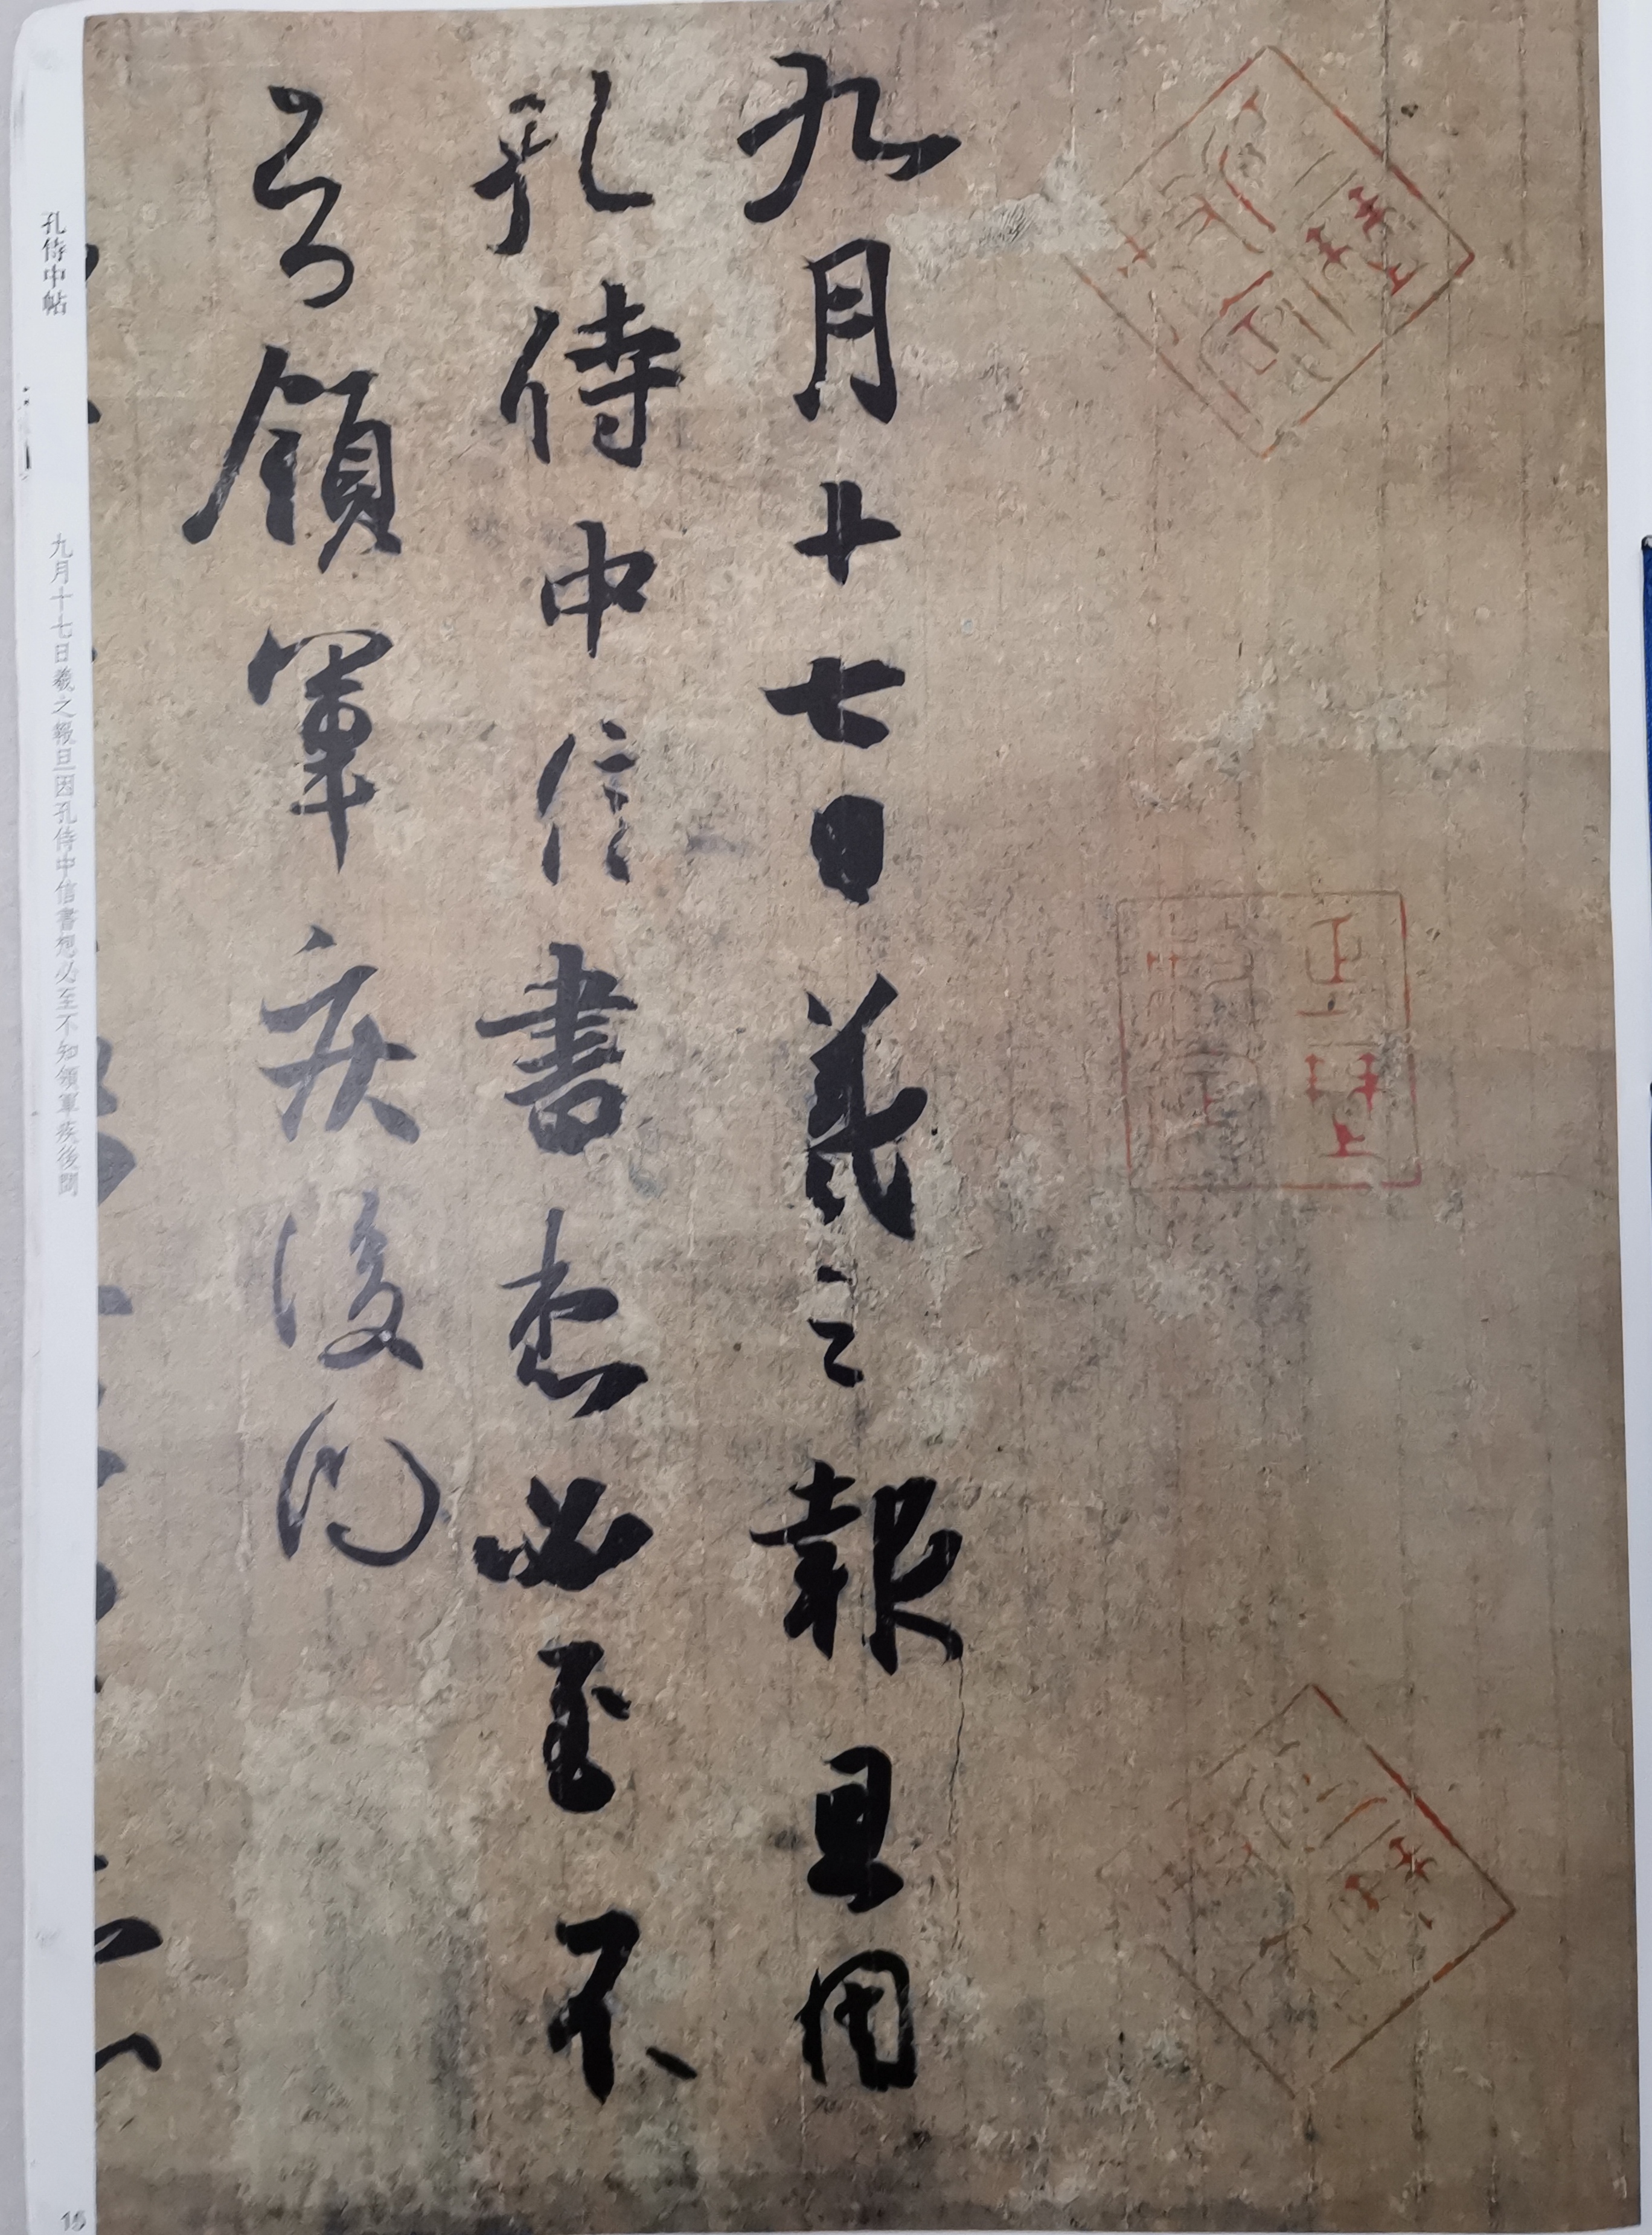 九月十七日羲之報旦因
孔侍中信書想必至不
知領軍疾後問
孔侍中帖
九月十七日羲之報旦因孔侍中信書想必至不知領軍疾後問
15